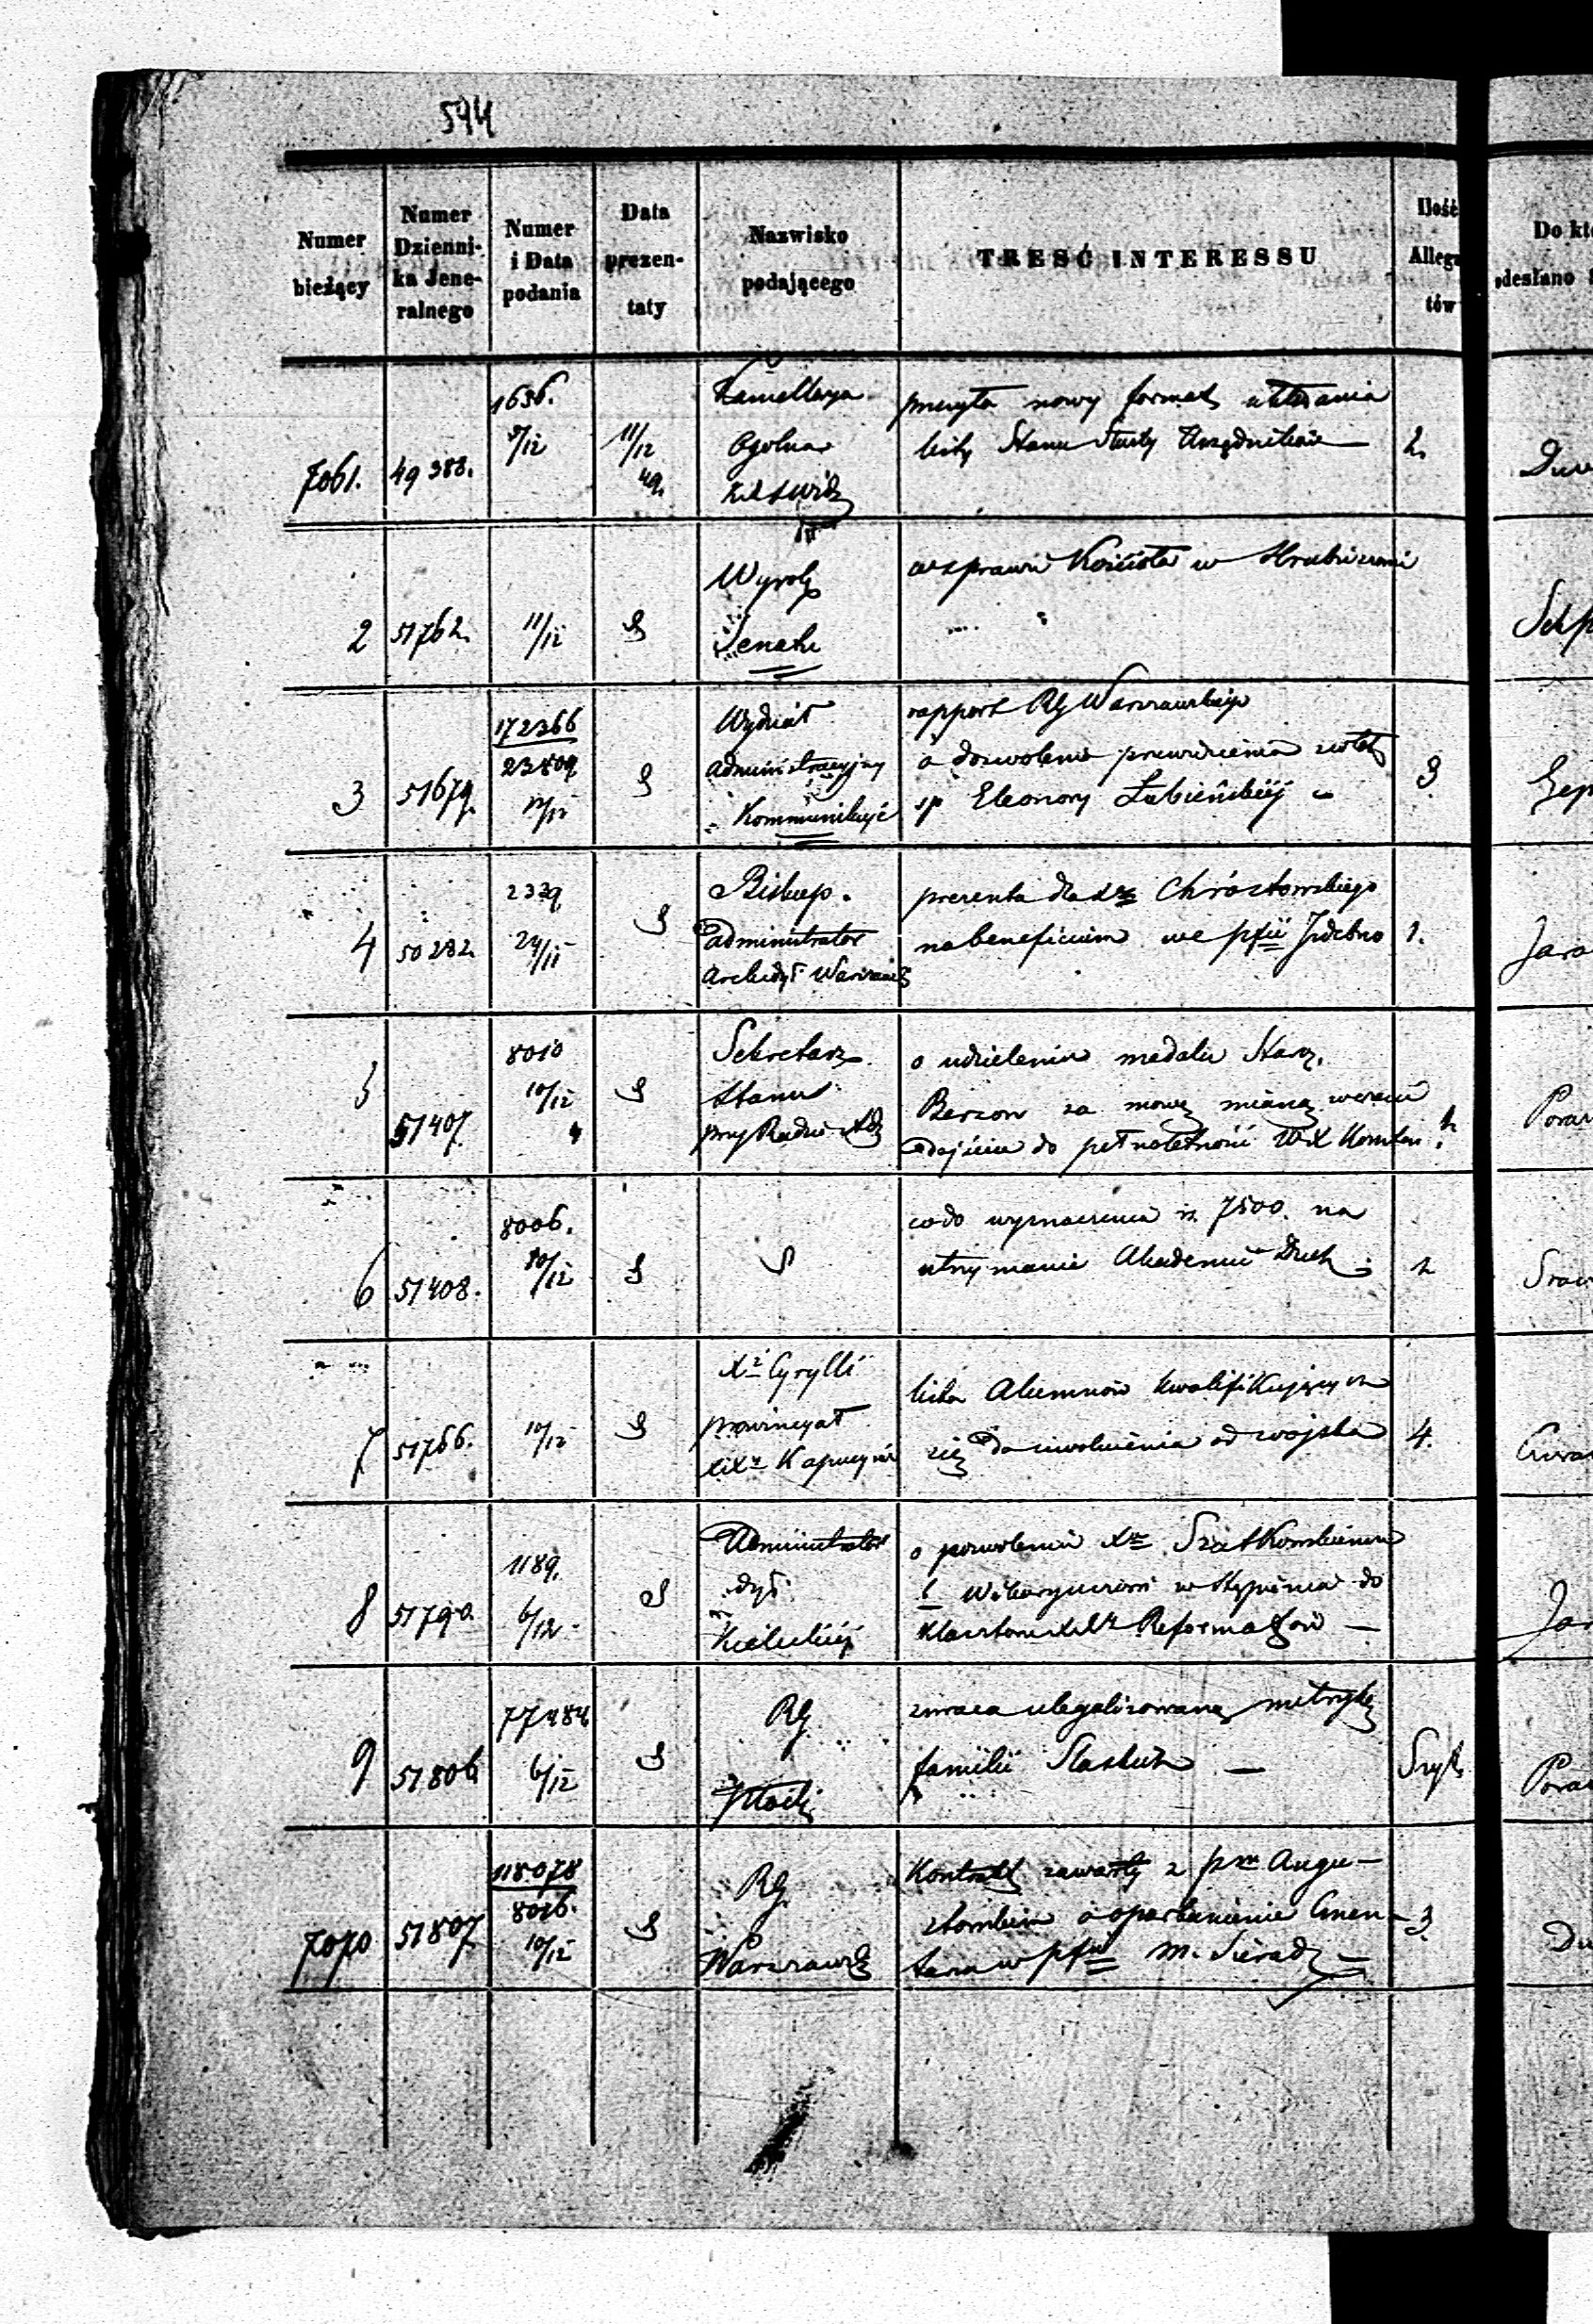 594
Numer bieżący
Numer Dzienni-ka Jene-ralnego
Numer i Data podania
Data prezen-taty
Nazwisko podającego
TREŚĆ INTERESSU
Ilość Allega tów
Do kt
odesłano
7061. 49 388. 1636. 9/12 11/12 49.
Kancellarya
Ogólna
przesyła nowy format układania
listy Stanu Służby Urzędników
2.
2 51762. 11/12
Wyrok
Senatu
w sprawie Kościoła w Hrubieszowie
3 51679. 172366 23809 11/12
Wydział
administracyjny
Kommunikuje
rapport RG Warszawskiego
o dozwolenie przewiezienia zwłok
sp Eleonory Łubieńskiej
3
4 50282. 2339 24/11
Biskup.
administrator
Archidyi Warszaws
prezenta dla Xa Chróstowskiego
na beneficium we pfii Jzdebno
1.
5 51407. 8010 10/12
Sekretarz
Stanu
przy Radzie Adm
o udzielenie medalu Starz.
Berzon za mowę mianą
dojściu do pełnoletności WX Konstan
6 51408. 8006. 10/12
co do wyznaczenia rs. 7500. na
utrzymanie Akademii Duch
2
7 51766. 10/12
Xdz Cyrylli
prowincyał
XXów Kapucynów
lista Alumnów kwalifikujących
się do uwolnienia od wojska
4.
8 51790. 1189. 6/12
Administrator
dyi
Kieleckiej
o pozwolenie Xdzu Szatkowskiemu
Wikaryuszowi w Stępnica do
klasztoru XXów Reformatów
9 51806 77484 6/12
RG
Płocki
zwraca ulegalizowaną metrykę
familii Slaskich
7070 51807 118078 8026. 10/12
RG
Warszawsk
Kontrakt zawarty z pm Augu-
stowskim o oparkanienie Cmen-
tarza w pfii M. Sieradz
3